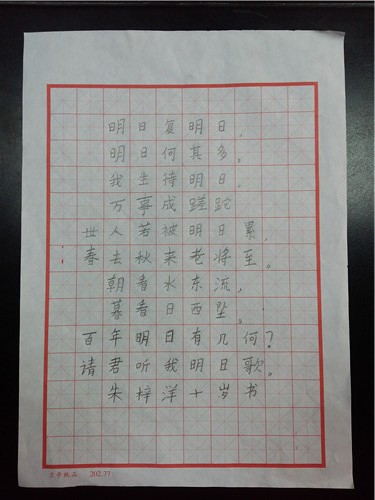 明日复明日，
明日何其多。
我生待明日，
万事成蹉跎
世人若被明日累，
春去秋来老将至。
朝看水东流，
暮看日西坠。
百年明日有几何？
请君听我明日歌。
朱梓洋十岁书